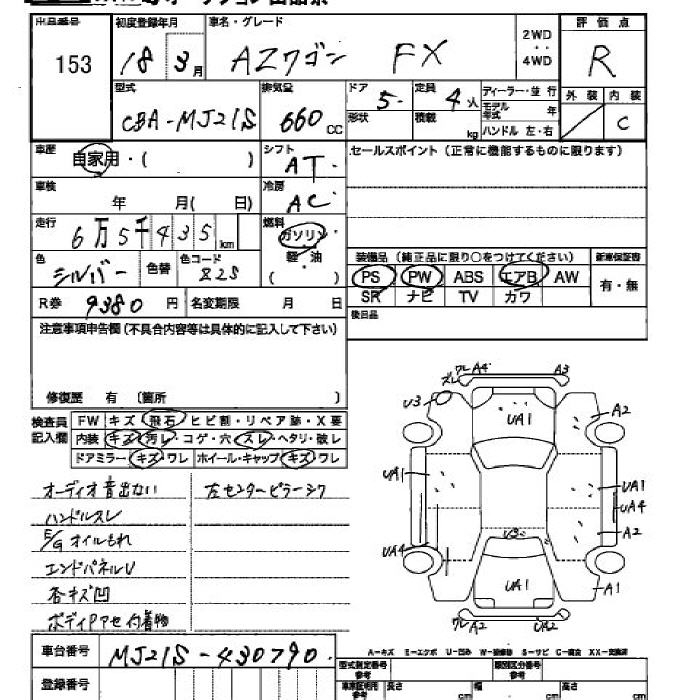 出品番号 初度登録年月 車名・グレード 2WD 評価点
153 18 3月 AZワゴン FX 4WD R
型式 排気量 ドア 定員 ディーラー・並行 外装 内装
CBA-MJ21S 660CC 5 4人 モデル年式 年 C
形状 積載 kg ハンドル 左・右
車歴 自家用・( ) シフト AT セールスポイント(正常に機能するものに限ります)
車検 年 月( 日) 冷房 AC
走行 6万5千435km 燃料 ガソリン
軽・油
( )
色 シルバー 色替 色コード 22S 装備品(純正品に限り○をつけてください) 新車保証書
PS PW ABS エアB AW 有・無
R券 9380円 名変期限 月 日 SR ナビ TV カワ
注意事項申告欄(不具合内容等は具体的に記入して下さい) 後日品
修復歴 有 (箇所 )
検査員記入欄 FW キズ・飛石・ヒビ割・リペア跡・X要
内装 キズ・汚レ・コゲ・穴・スレ・ヘタリ・破レ
ドアミラー キズ・ワレ ホイール・キャップ キズ・ワレ
オーディオ音出ない 左センターピラーシワ
ハンドルスレ
E/Gオイルもれ
エンドパネルU
各キズ凹
ボディPアセ付着物
ワレ A4 A3
ズレ
U3 UA1 A2
UA1 UA1
UA4
U3 A2
UA4
UA1 A1
ワレ A2 A2
車台番号 MJ21S-430790
A-キズ E-エクボ U-凹み W-補修跡 S-サビ C-腐食 XX-交換済
型式指定番号 参考 類別区分番号 参考
登録番号 車庫証明用 参考 長さ cm 幅 cm 高さ cm